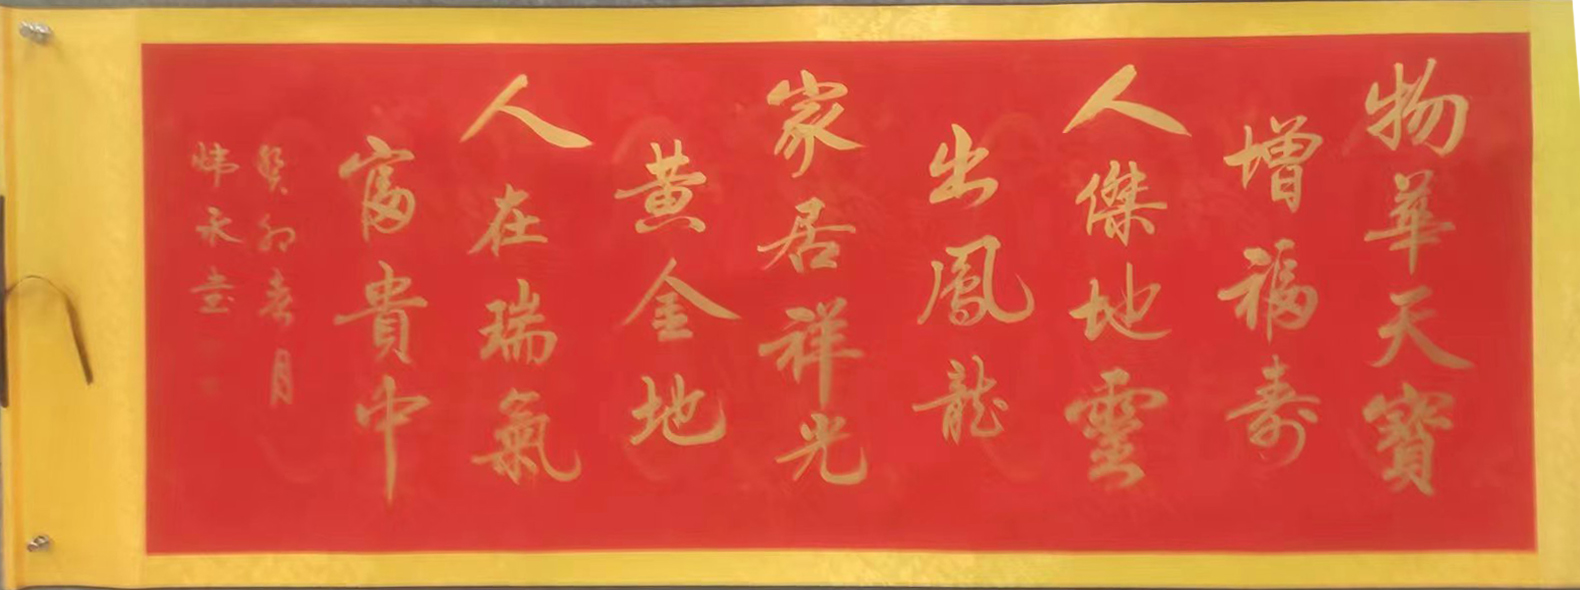 物華天寶
增福寿
人傑地靈
出鳳龍
家居祥光
黄金地
人在瑞氣
富貴中
癸卯春月
永堂